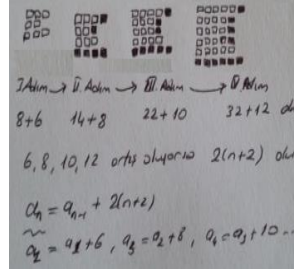 I. Adım → II. Adım → III. Adım → IV. Adım
8+6 14+8 22+10 32+12
6, 8, 10, 12 artış oluyorsa 2(n+2)
aₙ = aₙ₋₁ + 2(n+2)
a₂ = a₁+6, a₃ = a₂+8, a₄ = a₃+10...